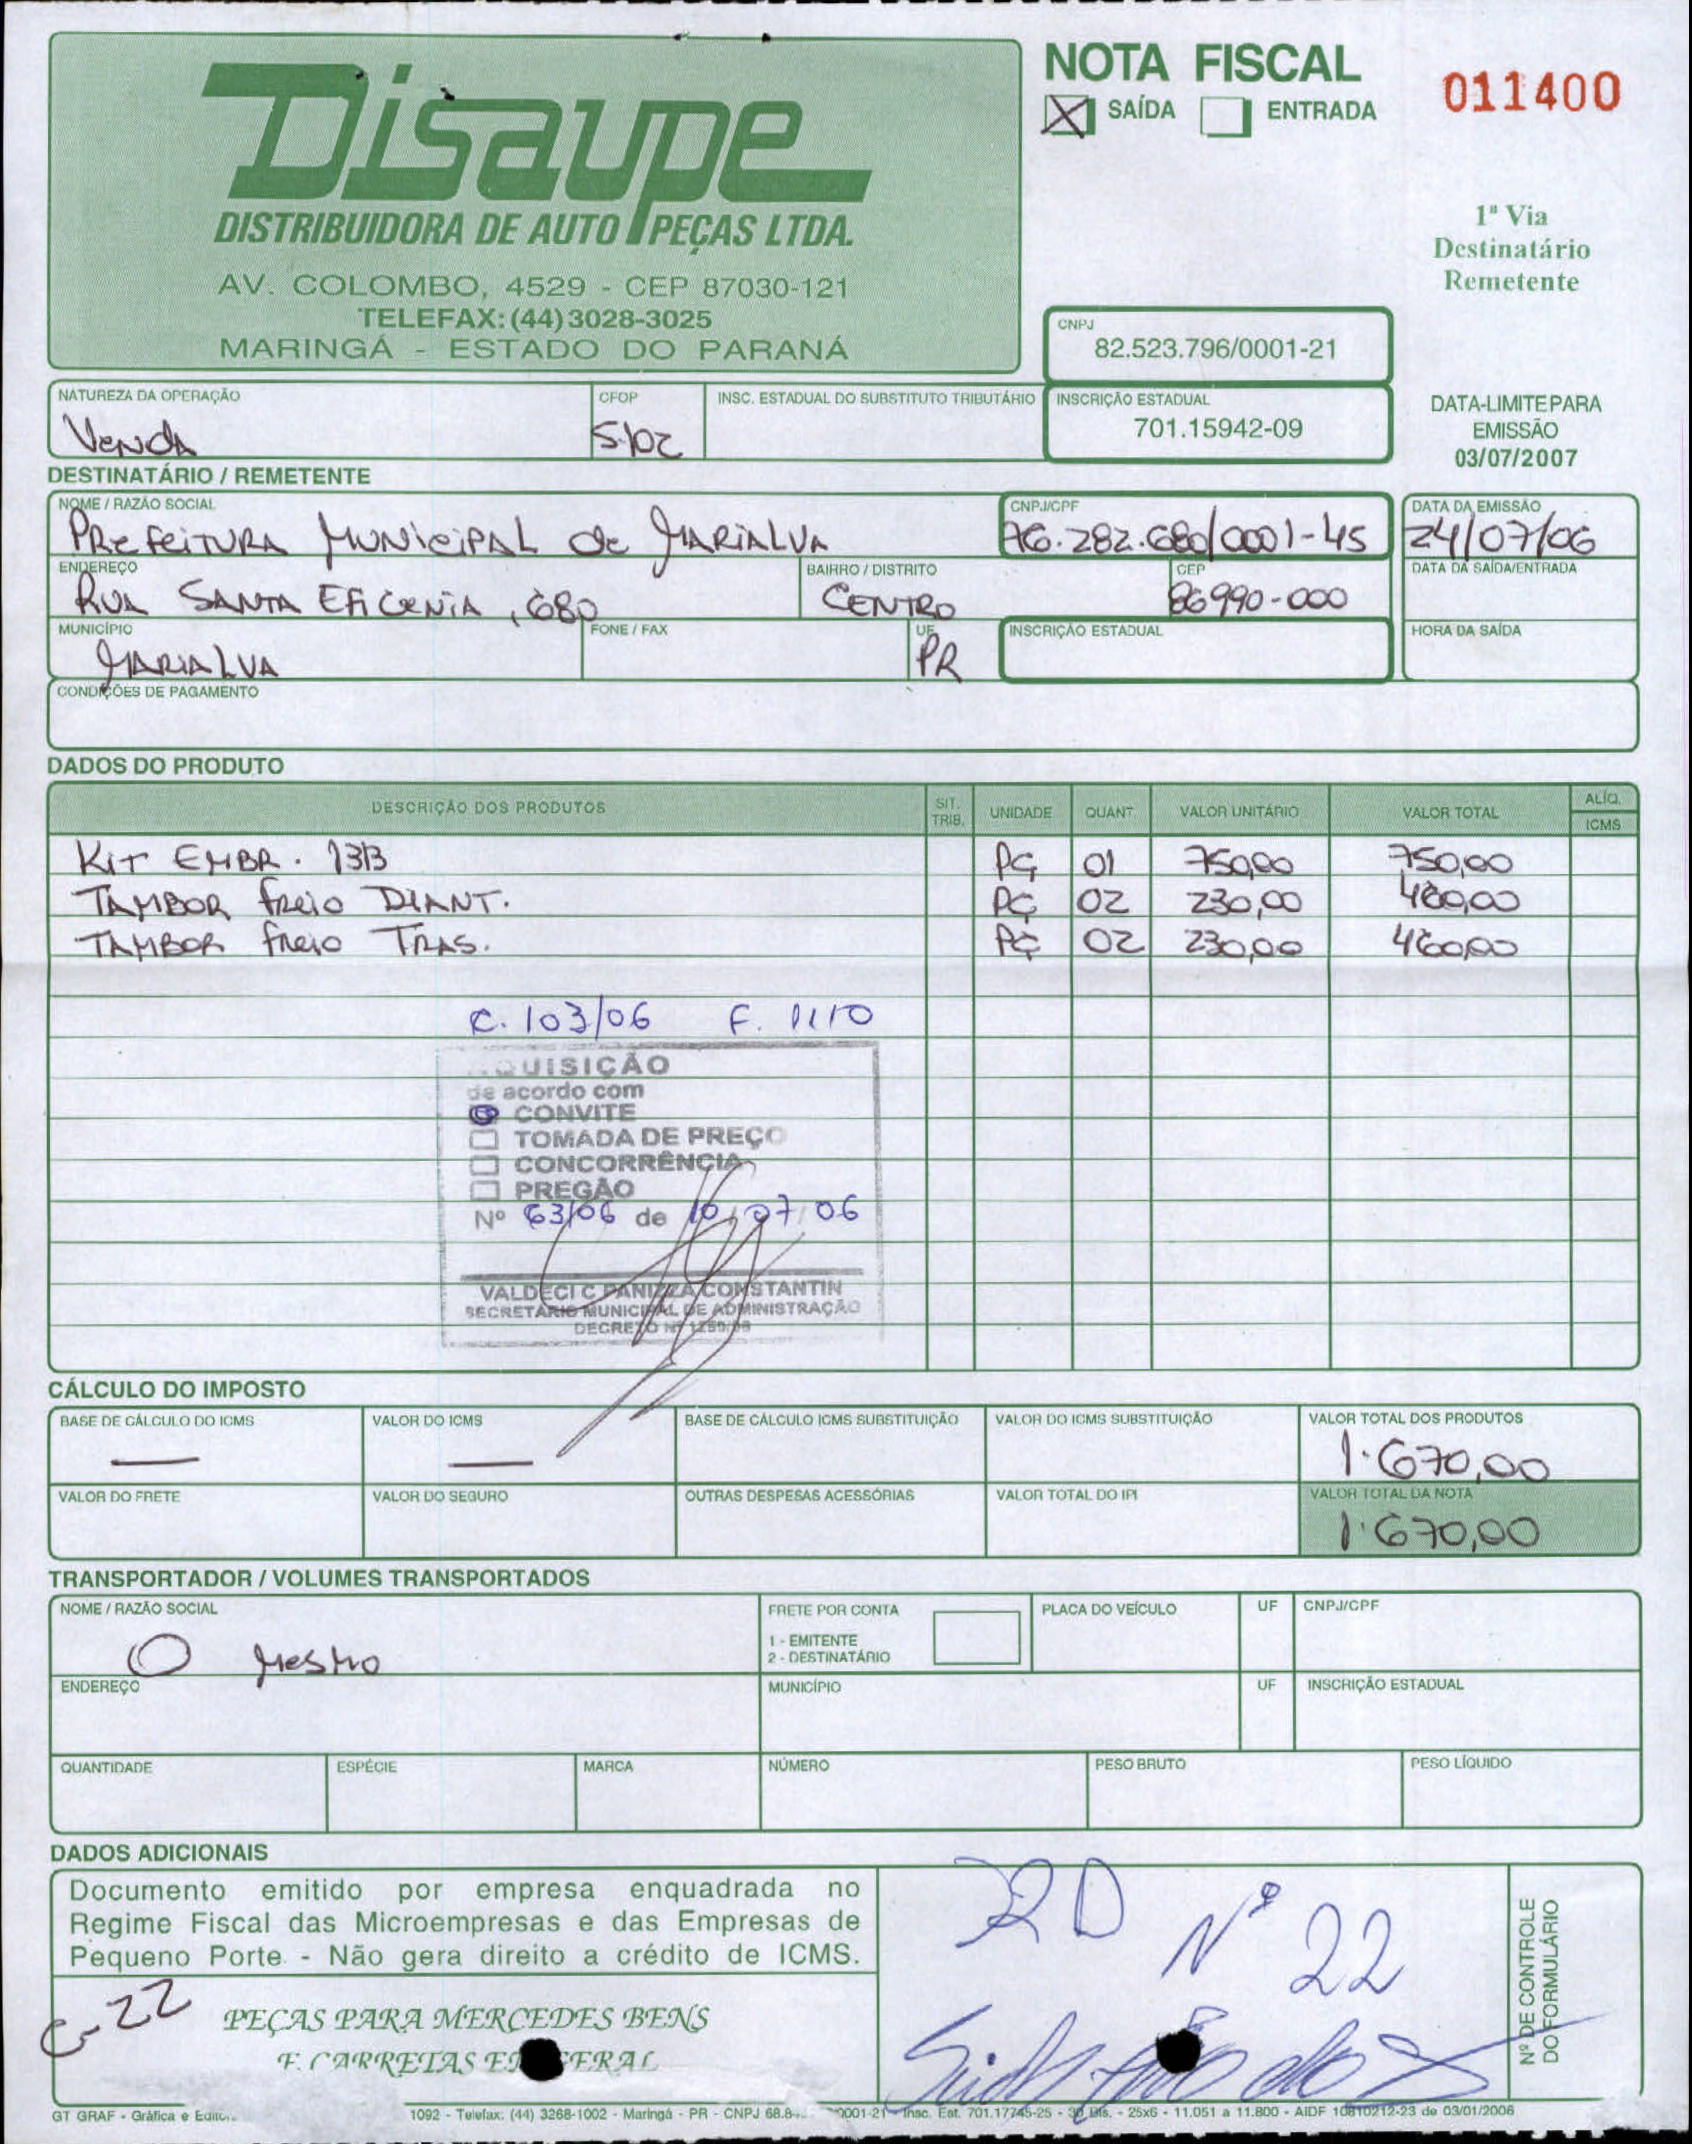 Disaupe
DISTRIBUIDORA DE AUTO PEÇAS LTDA.
AV. COLOMBO, 4529 - CEP 87030-121
TELEFAX: (44) 3028-3025
MARINGÁ - ESTADO DO PARANÁ
NOTA FISCAL
X SAÍDA ENTRADA
011400
1ª Via
Destinatário
Remetente
CNPJ
82.523.796/0001-21
NATUREZA DA OPERAÇÃO CFOP INSC. ESTADUAL DO SUBSTITUTO TRIBUTÁRIO INSCRIÇÃO ESTADUAL
Venda 5.102 701.15942-09
DATA-LIMITE PARA
EMISSÃO
03/07/2007
DESTINATÁRIO / REMETENTE
NOME / RAZÃO SOCIAL CNPJ/CPF DATA DA EMISSÃO
Prefeitura Municipal de Marialva 76.282.680/0001-45 24/07/06
ENDEREÇO BAIRRO / DISTRITO CEP DATA DA SAÍDA/ENTRADA
Rua Santa Efigenia, 680 Centro 86990-000
MUNICÍPIO FONE / FAX UF INSCRIÇÃO ESTADUAL HORA DA SAÍDA
Marialva PR
CONDIÇÕES DE PAGAMENTO
DADOS DO PRODUTO
DESCRIÇÃO DOS PRODUTOS SIT. TRIB. UNIDADE QUANT. VALOR UNITÁRIO VALOR TOTAL ALÍQ. ICMS
Kit Embr. 1313 PÇ 01 750,00 750,00
Tambor freio Diant. PÇ 02 230,00 460,00
Tambor freio Tras. PÇ 02 230,00 460,00
C. 103/06 F. 1110
QUISIÇÃO
de acordo com
CONVITE
TOMADA DE PREÇO
CONCORRÊNCIA
PREGÃO
Nº 63/06 de 10/07/06
VALDECI C PANIZZA CONSTANTIN
SECRETÁRIO MUNICIPAL DE ADMINISTRAÇÃO
DECRETO Nº
CÁLCULO DO IMPOSTO
BASE DE CÁLCULO DO ICMS VALOR DO ICMS BASE DE CÁLCULO ICMS SUBSTITUIÇÃO VALOR DO ICMS SUBSTITUIÇÃO VALOR TOTAL DOS PRODUTOS
— — 1.670,00
VALOR DO FRETE VALOR DO SEGURO OUTRAS DESPESAS ACESSÓRIAS VALOR TOTAL DO IPI VALOR TOTAL DA NOTA
1.670,00
TRANSPORTADOR / VOLUMES TRANSPORTADOS
NOME / RAZÃO SOCIAL FRETE POR CONTA PLACA DO VEÍCULO UF CNPJ/CPF
1 - EMITENTE
2 - DESTINATÁRIO
O Mesmo
ENDEREÇO MUNICÍPIO UF INSCRIÇÃO ESTADUAL
QUANTIDADE ESPÉCIE MARCA NÚMERO PESO BRUTO PESO LÍQUIDO
DADOS ADICIONAIS
Documento emitido por empresa enquadrada no
Regime Fiscal das Microempresas e das Empresas de
Pequeno Porte - Não gera direito a crédito de ICMS.
22
PEÇAS PARA MERCEDES BENS
CARRETAS
Nº 22
Nº DE CONTROLE
DO FORMULÁRIO
GT GRAF - Gráfica e 1092 - Telefax: (44) 3268-1002 - Maringá - PR - CNPJ 0001-21 - Insc. Est. 701.17745-25 - 30 Bls. - 25x6 - 11.051 a 11.800 - AIDF 10810212-23 de 03/01/2006